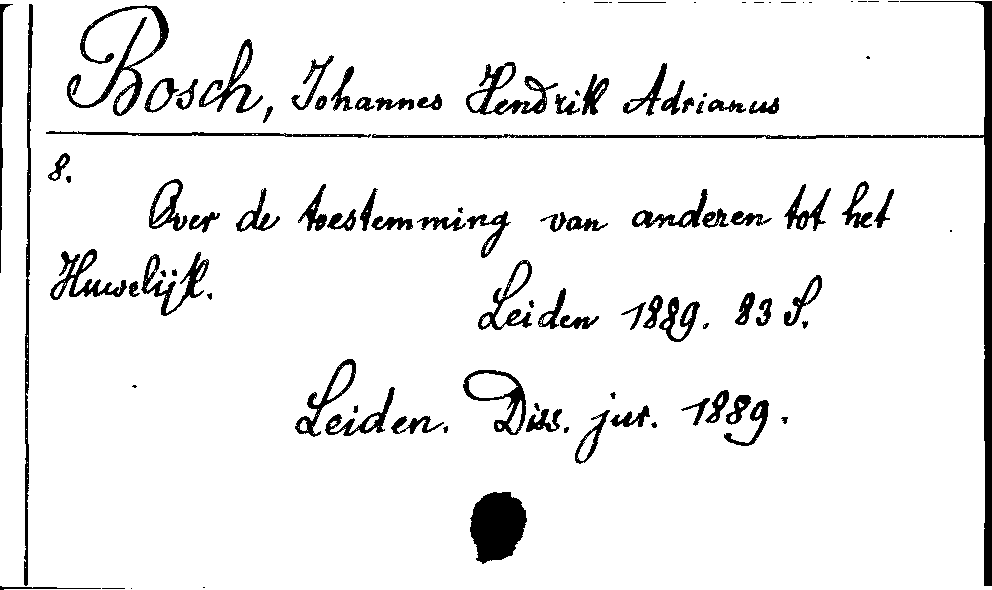 Bosch, Johannes Hendrik Adrianus
8.
Over de toestemming van anderen tot het
Huwelijk.
Leiden 1889. 83 S.
Leiden. Diss. jur. 1889.